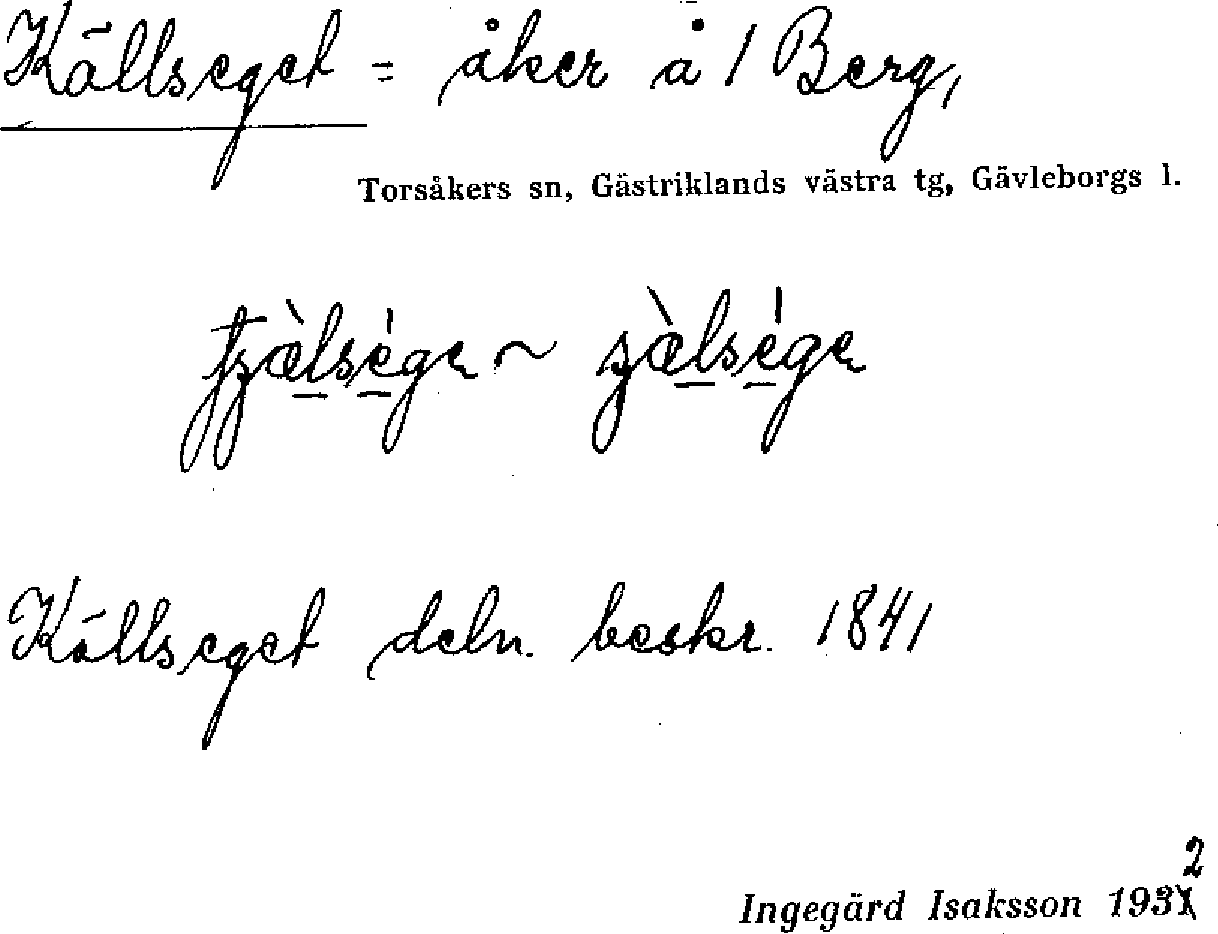 Källseget = åker å 1 Berg,
Torsåkers sn, Gästriklands västra tg, Gävleborgs l.
Källseget deln. beskr. 1841
Ingegärd Isaksson 1932